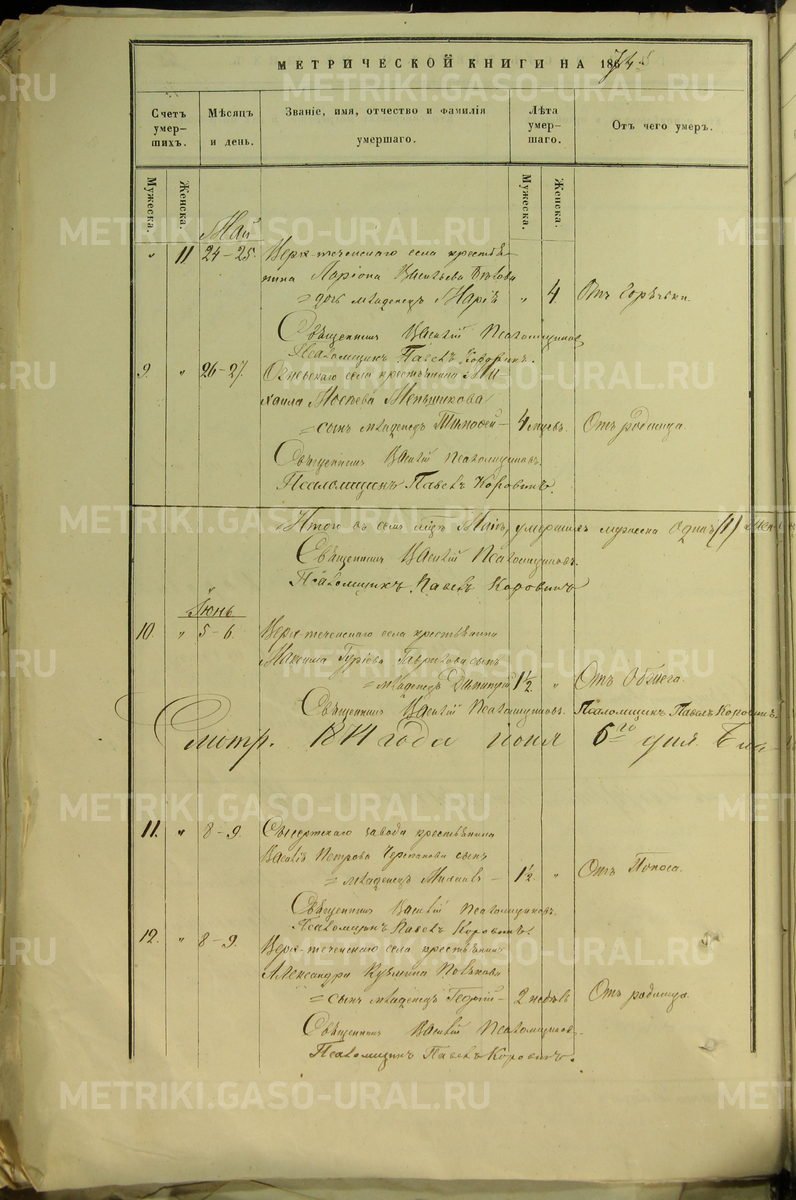 МЕТРИЧЕСКОЙ КНИГИ НА 1871й
Счетъ умер-шихъ.
Мѣсяцъ и день.
Званіе, имя, отчество и фамилія умершаго.
Лѣта умер-шаго.
Отъ чего умеръ.
Мужеска.
Женска.
Мужеска.
Женска.
Май
" 11 24-25. Верх-теченскаго села крестья-
нина Ларіона Васильева
= дочь младенецъ Марія " 4. Отъ горячки.
Священникъ Василій Псаломщиковъ
Псаломщикъ Павелъ Коровинъ.
9. " 26-27. Огневскаго села крестьянина Ми-
хаила Меньшикова
= сынъ младенецъ Тимофей - 4 Отъ родимца.
Священникъ Василій Псаломщиковъ.
Псаломщикъ Павелъ Коровинъ.
Итого въ семъ Маіѣ, умершихъ мужеска одинъ (1)
Священникъ Василій Псаломщиковъ.
Псаломщикъ Павелъ Коровинъ
Іюнь
10. " 5-6. Верх-теченскаго села крестьянина
Гурьова сынъ
= младенецъ Димитрій 1½ " Отъ
Священникъ Василій Псаломщиковъ. Псаломщикъ Павелъ Коровинъ.
Смотр. 1871 года іюня 6го дня Бла-
11. " 8-9. Сысертскаго завода крестьянина
Василія Петрова сынъ
= младенецъ - 1½. " Отъ Поноса.
Священникъ Василій Псаломщиковъ.
Псаломщикъ Павелъ Коровинъ.
12. " 8-9. Верх-теченскаго села крестьянина
Александра Кузмина
= сынъ младенецъ Георгій - 2 недѣль Отъ родимца.
Священникъ Василій Псаломщиковъ.
Псаломщикъ Павелъ Коровинъ.
METRIKI.GASO-URAL.RU